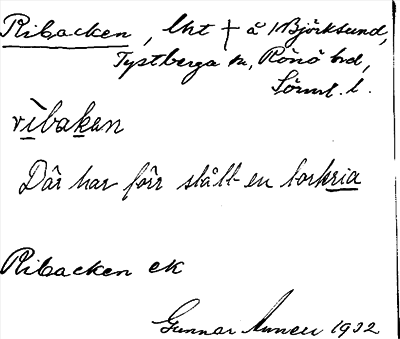 Ribacken, lht † å Björksund,
Tystberga sn, Rönö hd,
Sörml. l.
rìbakan
Där har förr stått en torkria
Ribacken ek
Gunnar 1932